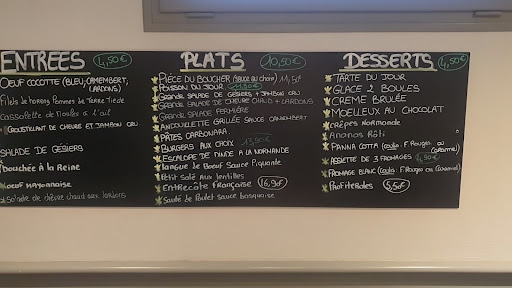 ENTREES 4,50€
OEUF COCOTTE (BLEU, CAMEMBERT,
LARDONS)
Filets de hareng Pommes de Terre Tiède
Cassollette de Moules à l'ail
CROUSTILLANT DE CHEVRE ET JAMBON CRU
SALADE DE GÉSIERS
Bouchée à la Reine
OEUF MAYONNAISE
Salade de chèvre chaud aux lardons
PLATS 10,50€
PIÈCE DU BOUCHER (sauce au choix) 11,50€
POISSON DU JOUR
GRANDE SALADE DE GÉSIERS + JAMBON CRU
GRANDE SALADE DE CHEVRE CHAUD + LARDONS
GRANDE SALADE FERMIÈRE
ANDOUILLETTE GRILLÉE SAUCE CAMEMBERT
PÂTES CARBONARA
BURGERS AUX CHOIX 13,90€
ESCALOPE DE DINDE A LA NORMANDE
Langue de Boeuf Sauce Piquante
Petit Salé aux Lentilles
ENTRECÔTE FRANÇAISE 16,90€
Sauté de Poulet Sauce basquaise
DESSERTS 4,50€
TARTE DU JOUR
GLACE 2 BOULES
CREME BRULÉE
MOELLEUX AU CHOCOLAT
CRÊPES NORMANDE
Ananas Rôti
PANNA COTTA (coulis F. Rouges ou
CARAMEL)
ASSIETTE DE 3 FROMAGES 4,90€
FROMAGE BLANC (coulis F. Rouges ou Caramel)
PROFITEROLES 5,50€